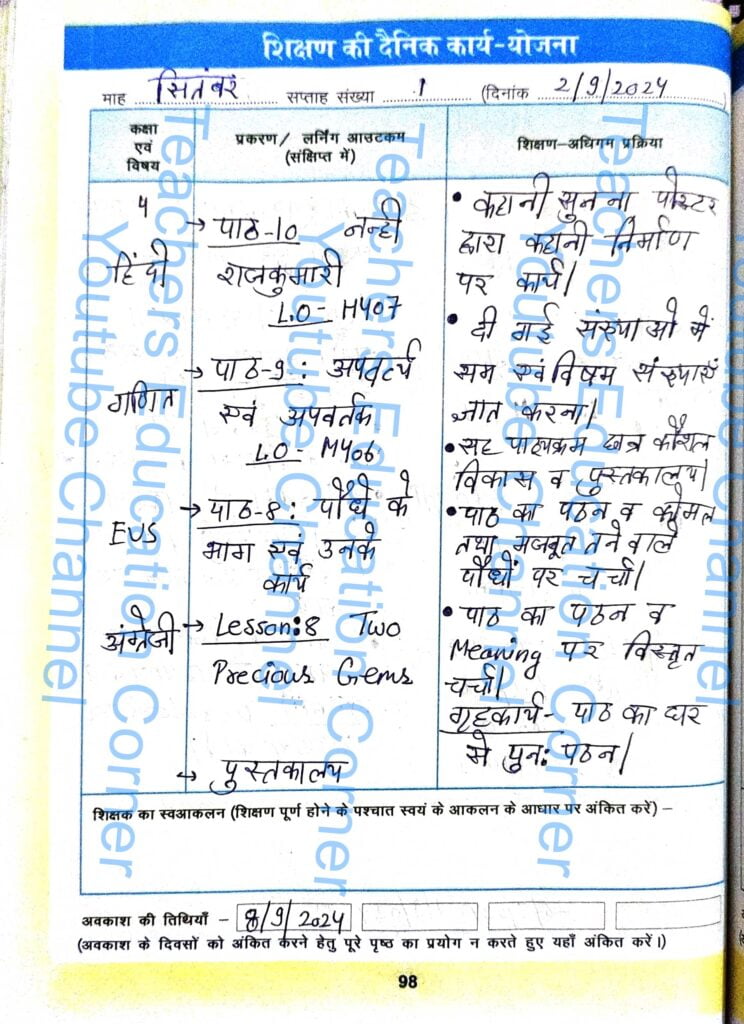 शिक्षण की दैनिक कार्य-योजना
माह सितंबर सप्ताह संख्या 1 (दिनांक 2/9/2024
कक्षा
एवं
विषय
प्रकरण/ लर्निंग आउटकम
(संक्षिप्त में)
शिक्षण-अधिगम प्रक्रिया
4
हिंदी
→ पाठ-10 नन्ही
राजकुमारी
L.O- H407
• कहानी सुन ना पोस्टर
द्वारा कहानी निर्माण
पर कार्य।
गणित
→ पाठ-9: अपवर्त्य
एवं अपवर्तक
L.O- M406
• दी गई संख्याओ में
सम एवं विषम संख्याएं
ज्ञात करना।
• सह पाठ्यक्रम छात्र कौशल
विकास व पुस्तकालय।
EVS
→ पाठ-8: पौधे के
भाग एवं उनके
कार्य
• पाठ का पठन व कोमल
तथा मजबूत तने वाले
पौधों पर चर्चा।
अंग्रेजी
→ Lesson:8 Two
Precious Gems
• पाठ का पठन व
Meaning पर विस्तृत
चर्चा।
गृहकार्य- पाठ का घर
मे पुन: पठन।
→ पुस्तकालय
शिक्षक का स्वआकलन (शिक्षण पूर्ण होने के पश्चात स्वयं के आकलन के आधार पर अंकित करें) –
अवकाश की तिथियाँ – 8/9/2024
(अवकाश के दिवसों को अंकित करने हेतु पूरे पृष्ठ का प्रयोग न करते हुए यहाँ अंकित करें।)
98
Teachers Education Corner
Youtube Channel
Teachers Education Corner
Youtube Channel
Teachers Education Corner
Youtube Channel
Channel